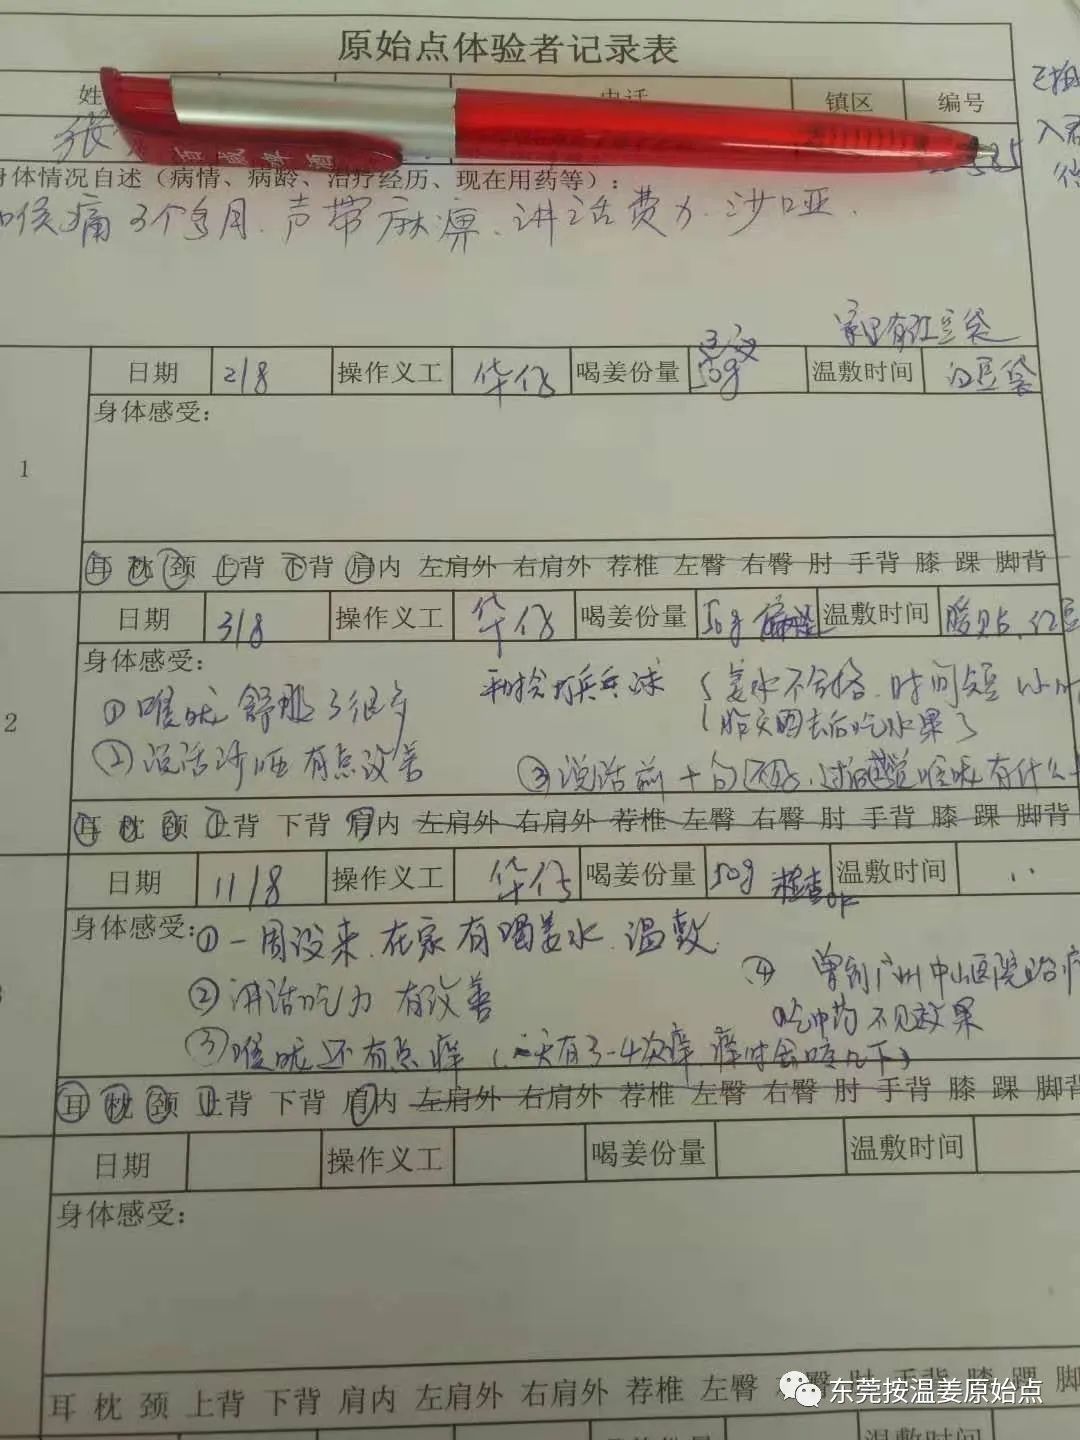 原始点体验者记录表
镇区 编号
张
百威啤酒
身体情况自述（病情、病龄、治疗经历、现在用药等）：
喉痛3个多月.声带麻痹.讲话费力.沙哑.
家里有红豆袋
日期 2/8 操作义工 华仔 喝姜份量 50g 温敷时间 红豆袋
身体感受：
1
耳 枕 颈 上背 下背 肩内 左肩外 右肩外 荐椎 左臀 右臀 肘 手背 膝 踝 脚背
日期 3/8 操作义工 华仔 喝姜份量 50g 温敷时间 暖贴、红豆
身体感受：
2
①喉咙舒服了很多 打乒乓球 姜水不合格.时间短
昨天回去后吃水果了
②说话沙哑有点改善 ③说话前十句还好.过后感觉喉咙有什么
耳 枕 颈 上背 下背 肩内 左肩外 右肩外 荐椎 左臀 右臀 肘 手背 膝 踝 脚背
日期 11/8 操作义工 华仔 喝姜份量 50g 检查OK 温敷时间
身体感受：①一周没来.在家有喝姜水.温敷.
②讲话吃力有改善 ④曾到广州中山医院治疗
吃中药不见效果
③喉咙还有点痒（一天有3-4次痒.痒时会咳几下）
耳 枕 颈 上背 下背 肩内 左肩外 右肩外 荐椎 左臀 右臀 肘 手背 膝 踝 脚背
日期 操作义工 喝姜份量 温敷时间
身体感受：
耳 枕 颈 上背 下背 肩内 左肩外 右肩外 荐椎 左臀 肘 手背 膝 踝 脚
东莞按温姜原始点
温敷时间